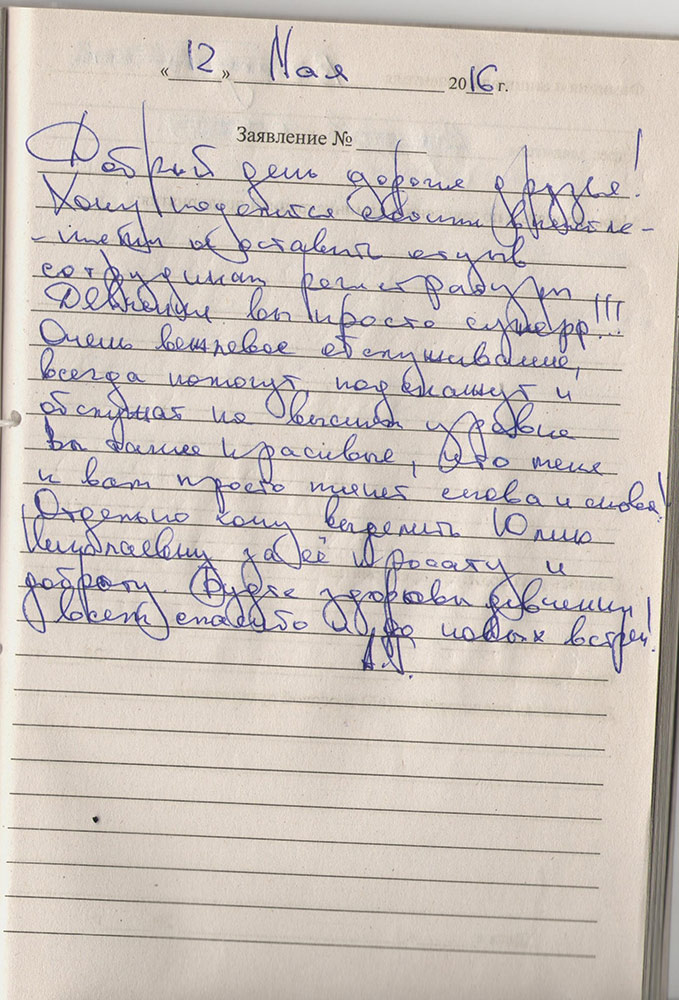 « 12 » Мая 2016 г.
Заявление №
Добрый день дорогие друзья!
Хочу поделится своими впечатле-
-ниями и оставить отзыв
сотрудникам регистратуры
Девченки вы просто суперр!!!
Очень вежлевое обслуживание,
всегда помогут подскажут и
обслужат на высшем уровне
Вы такие красивые, что меня
к вам просто тянет снова и снова!
Отдельно хочу выделить Юлию
за её красоту и
доброту. Будте здоровы девченки!
Всем спасибо и до новых встреч!